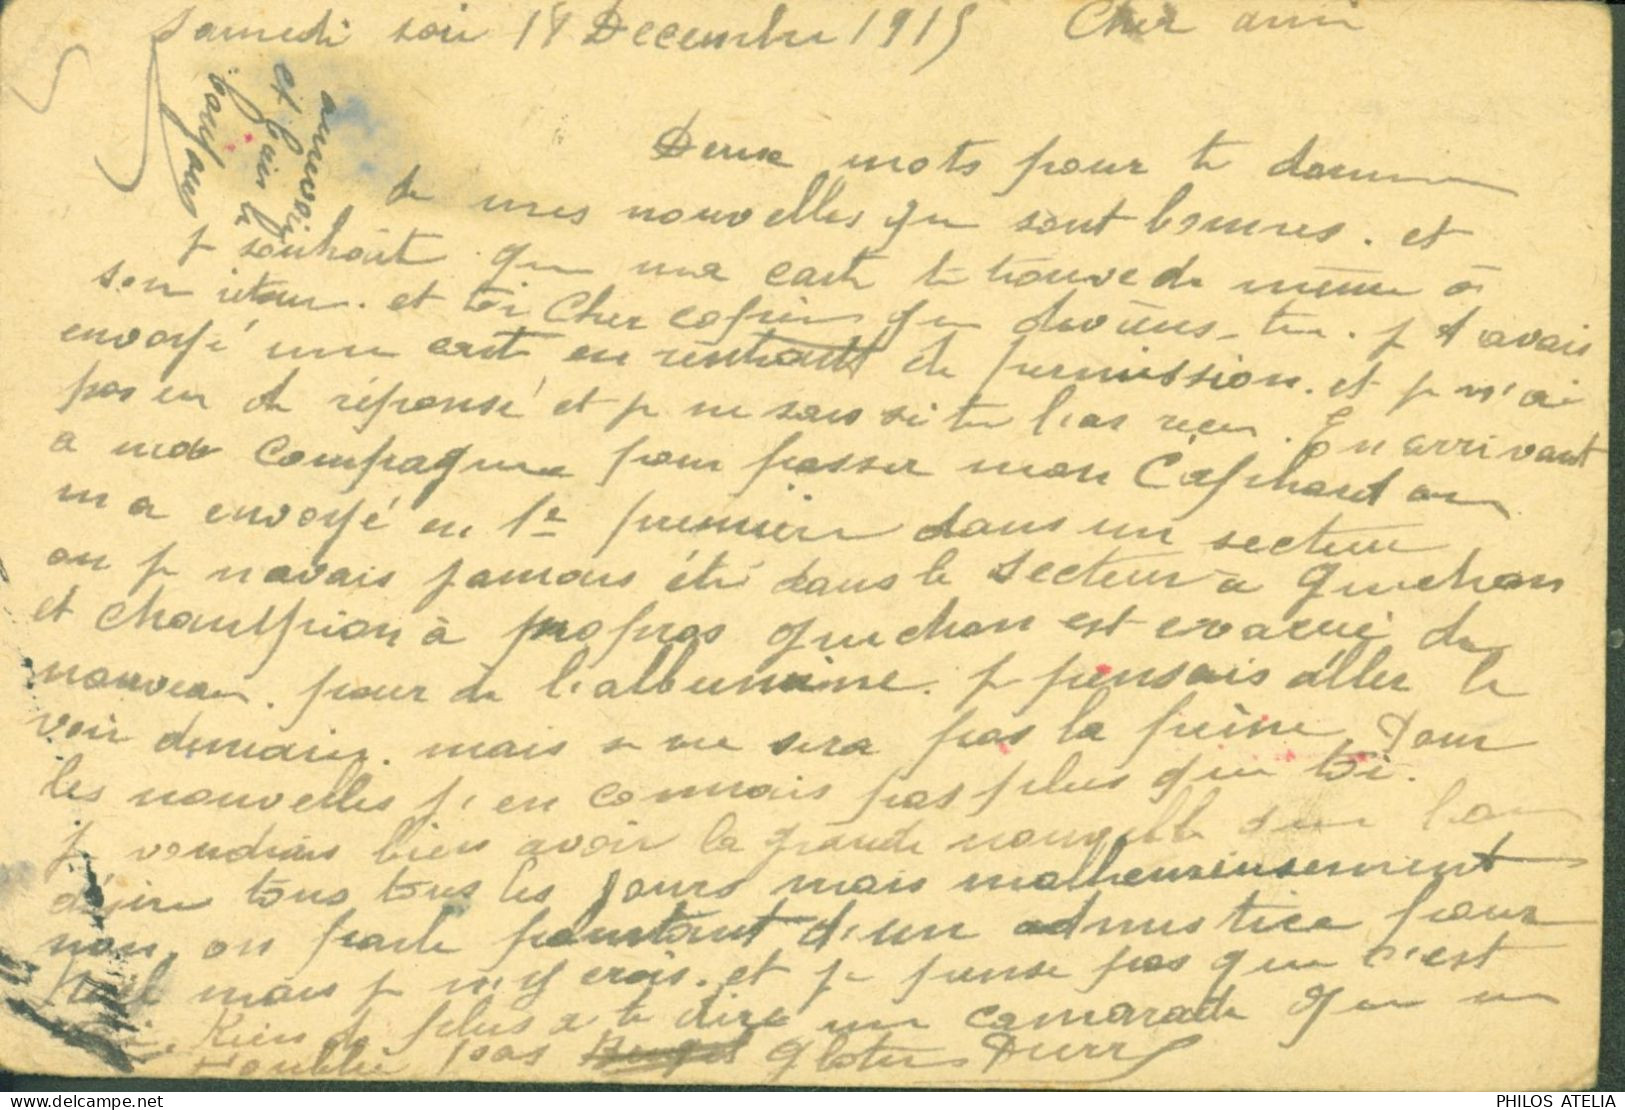 Samedi soir 18 Decembre 1915 Cher ami
Deux mots pour te donner
de mes nouvelles qui sont bonnes. et
je souhait que ma carte te trouve de même à
son retour. et toi Cher copain que deviens-tu. je t'avais
envoyé une carte en rentrant de permission. et je n'ai
pas eu de réponse et je ne sais si tu l'as reçu. En arrivant
a ma compagnie pour passer mon Cafhard on
m a envoyé en 1e première dans un secteur
ou je n avais jamais été dans le secteur a Guichon
et Champion à propos Guichon est evacué de
nouveau. pour de l'albumine. je pensais aller le
voir demain. mais ce ne sera pas la peine Pour
les nouvelles j'en connais pas plus que toi.
je voudrais bien avoir la grande nouvelle que l'on
désire tous tous les jours mais malheureusement
non, on parle pourtant d'un admistice pour
Noël mais je n'y crois. et je pense pas que c'est
Rien de plus a te dire un camarade qui ne
t'oublie pas Durr
au revoir
et fais le